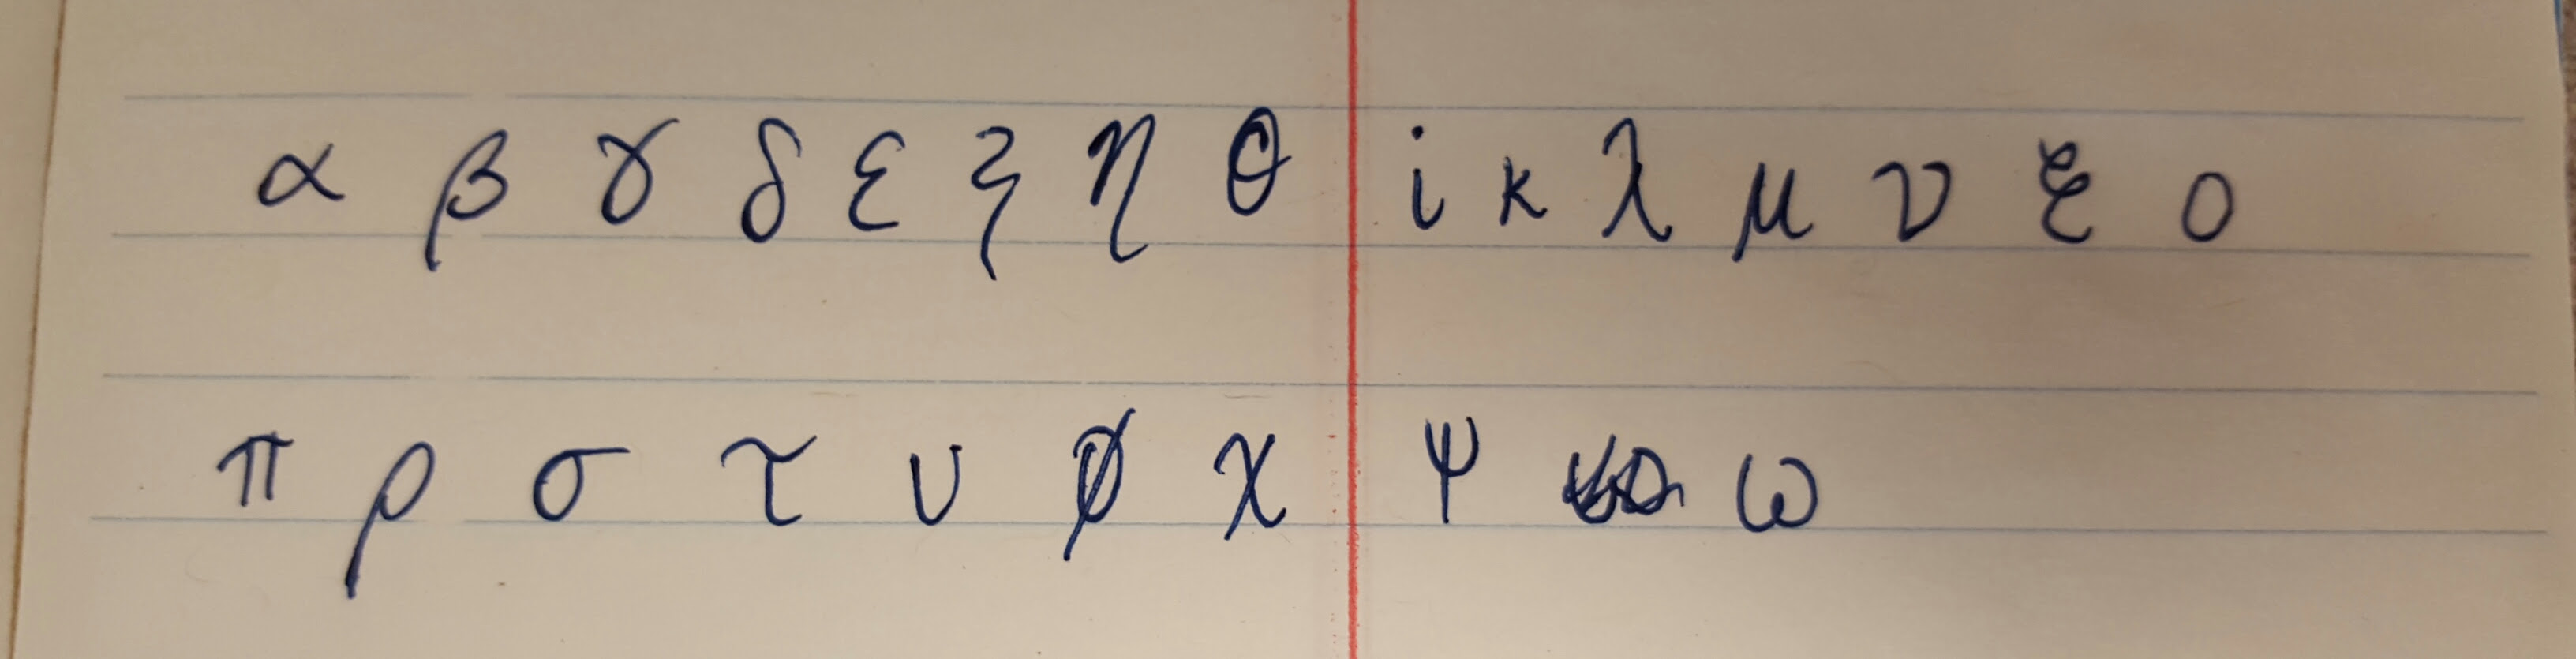 α β γ δ ε ζ η θ i κ λ μ ν ξ ο
π ρ σ τ υ φ χ ψ ω